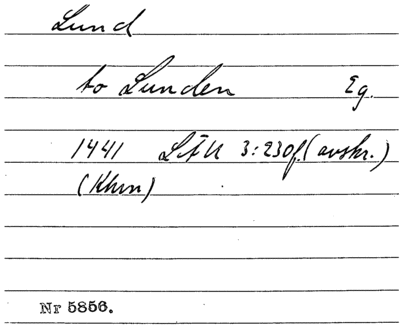 Lund
to Lunden Eg.
1441 LÄU 3:230f. (avskr.)
(Khvn)
Nr 5856.